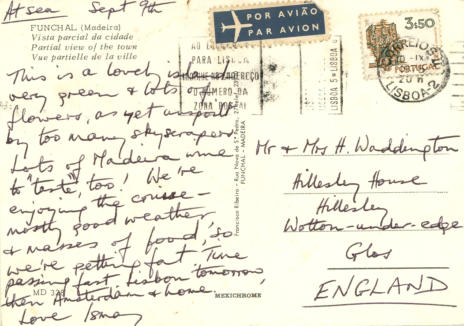 At sea Sept 9th
FUNCHAL (Madeira)
Vista parcial da cidade
Partial view of the town
Vue partielle de la ville
This is a lovely island
very green & lots of
flowers, as yet unspoilt
by too many skyscrapers
Lots of Madeira wine
to "taste", too! We're
enjoying the course –
mostly good weather
& masses of food, so
we're getting fat. Time
passing fast. Lisbon tomorrow,
then Amsterdam & home.
Love
MD 328
MEXICHROME
Francisco Ribeiro
FUNCHAL - MADEIRA
POR AVIÃO
PAR AVION
PARA LISBOA
O NÚMERO DA
ZONA POSTAL
LISBOA
3$50
CORREIOS
PORTUGAL
LISBOA-2
Mr & Mrs H. Waddington
Hillesley House
Hillesley
Wotton-under-edge
Glos
ENGLAND